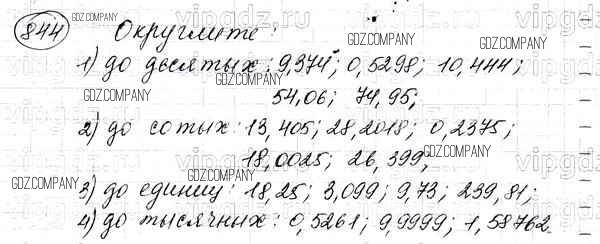 844 Округлите:
1) до десятых: 9,374; 0,5298; 10,444;
54,06; 74,95;
2) до сотых: 13,405; 28,2018; 0,2375;
18,0025; 26,399;
3) до единиц: 18,25; 3,099; 9,73; 239,81;
4) до тысячных: 0,5261; 9,9999; 1,58762.
GDZ.COMPANY
GDZ.COMPANY
GDZ.COMPANY
GDZ.COMPANY
GDZ.COMPANY
GDZ.COMPANY
GDZ.COMPANY
vipgdz.ru
vipgdz.ru
vipgdz.ru